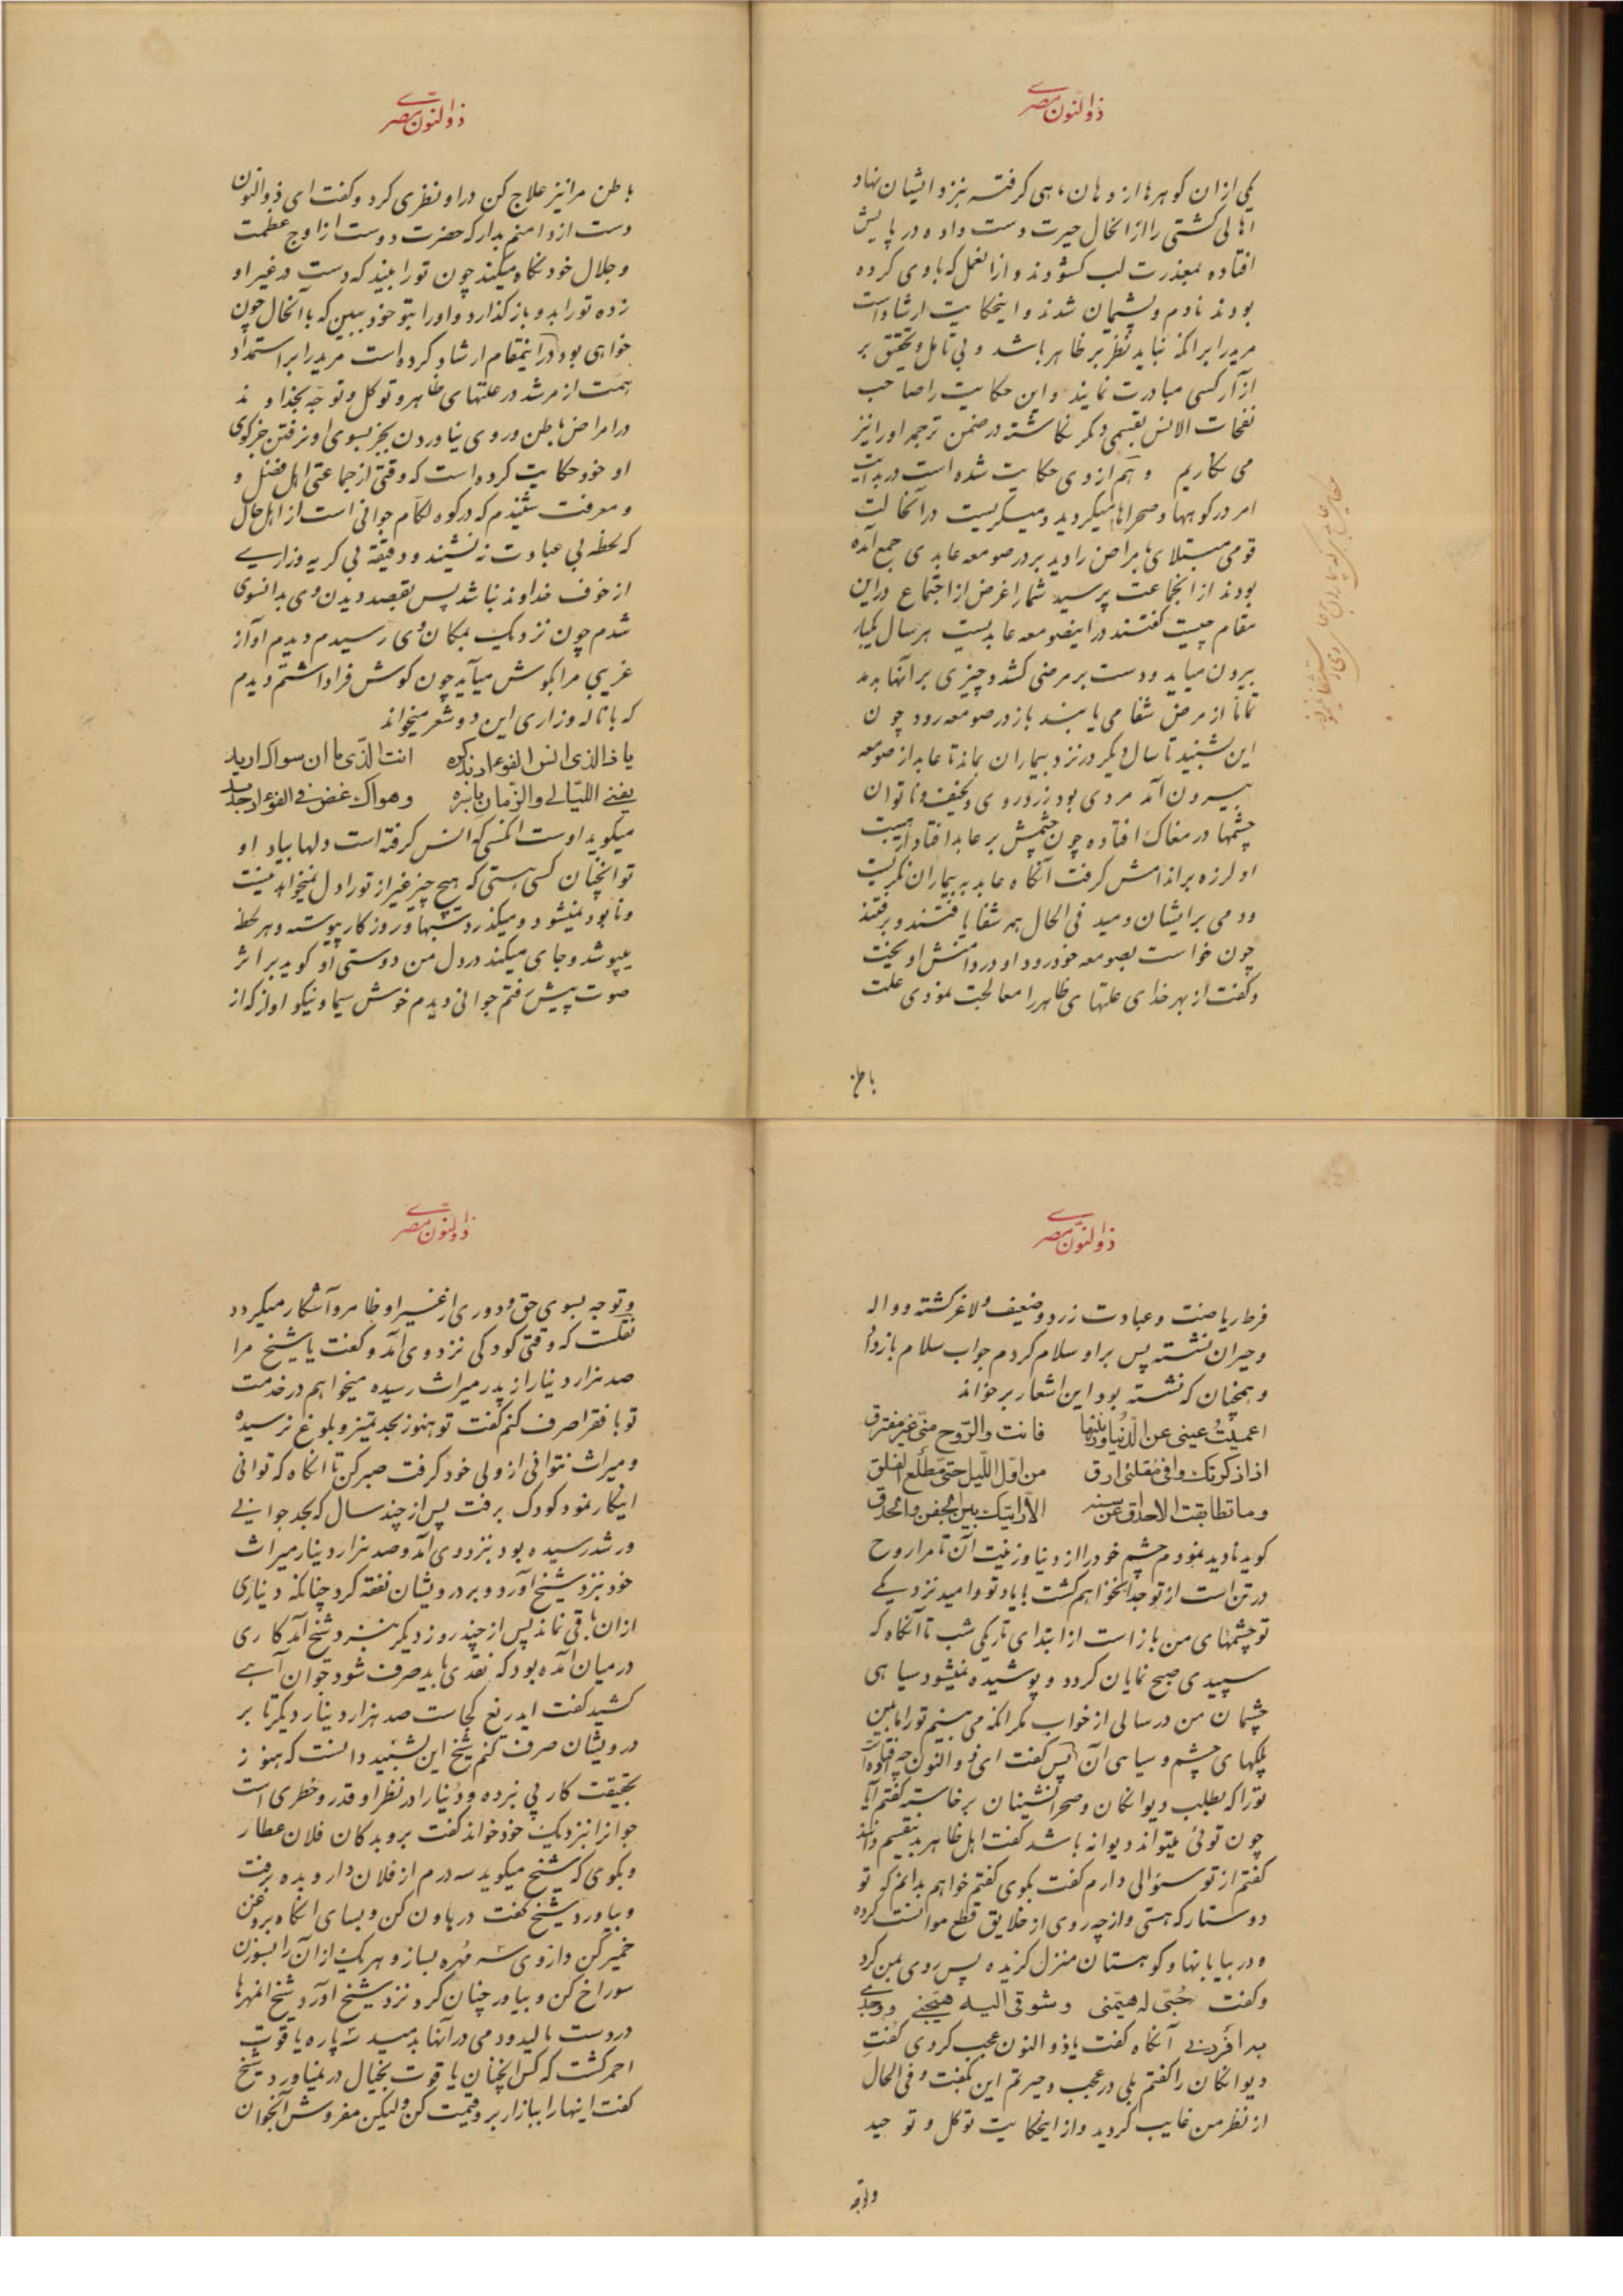 ذوالنون مصری
یکی ازان کوهرها از دهان ماهی کرفته بنزد ایشان نهاد
اهالی کشتی را از انحال حیرت دست داده در پایش
افتاده بمعذرت لب کشودند و از انعمل که با وی کرده
بودند نادم و پشیمان شدند و اینحکایت ارشاد است
مرید را برانکه نباید نظر بر ظاهر باشد و بی تامل و تحقیق بر
آزار کسی مبادرت نمایند و این حکایت را صاحب
نفحات الانس بقسمی دیکر نکاشته در ضمن ترجمه او را نیز
می نکاریم و هم از وی حکایت شده است در بدایت
امر در کوهها و صحراها میکردید و میکریست در آنحالت
قومی مبتلای بامراض را دید بر در صومعه عابدی جمع آمده
بودند از انجماعت پرسید شما را غرض از اجتماع در این
مقام چیست کفتند در اینصومعه عابدیست هر سال یکبار
بیرون میاید و دست بر مرضی کشد و چیزی بر آنها بدمد
تمامًا از مرض شفا می یابند باز در صومعه رود چون
این بشنید تا سال دیکر در نزد بیماران بماند تا عابد از صومعه
بیرون آمد مردی بود زرد روی و نحیف و ناتوان
چشمها در مغاک افتاده چون چشمش بر عابد افتاد از هیبت
او لرزه بر اندامش کرفت آنکاه عابد به بیماران نکریست
و دمی بر ایشان دمید فی الحال همه شفا یافتند و برفتند
چون خواست بصومعه خود رود او در دامنش اویخت
و کفت از بهر خدای علتهای ظاهر را معالجت نمودی علت
باطن
ذوالنون مصری
باطن مرا نیز علاج کن در او نظری کرد و کفت ای ذوالنون
دست از دامنم بدار که حضرت دوست از اوج عظمت
و جلال خود نکاه میکند چون تو را بیند که دست در غیر او
زده تو را بدو باز کذارد و او را بتو خود ببین که با آنحال چون
خواهی بود در اینمقام ارشاد کرده است مرید را بر استمداد
همت از مرشد در علتهای ظاهر و توکل و توجه بخداوند
در امراض باطن و روی نیاوردن بجز بسوی او و نرفتن جز کوی
او خود حکایت کرده است که وقتی از جماعتی اهل فضل و
و معرفت شنیدم که در کوه لکام جوانی است از اهل حال
که لحظهٔ بی عبادت ننشیند و دقیقهٔ بی کریه و زاری
از خوف خداوند نباشد پس بقصد دیدن وی بدانسوی
شدم چون نزدیک بمکان وی رسیدم دیدم آواز
غریبی مرا بکوش میآید چون کوش فرا داشتم دیدم
که با ناله و زاری این دو شعر میخواند
یا ذا الذی انس الفوءاد بذکره انت الذی ما ان سواک ارید
یفنی اللیالی والزمان باسره وهواک غض فی الفوءاد جدید
میکوید اوست انکسی که انس کرفته است دلها بیاد او
تو انچنان کسی هستی که هیچ چیز غیر از تو را دل نمیخواهد نیست
و نابود نمیشود و میکذرد شبها و روزکار پیوسته و هر لحظه
میپوشد و جای میکند در دل من دوستی او کوید بر اثر
صوت پیش رفتم جوانی دیدم خوش سیما و نیکو اواز که از
ذوالنون مصری
فرط ریاضت و عبادت زرد و ضعیف و لاغر کشته و واله
و حیران نشسته پس بر او سلام کردم جواب سلام باز داد
و همچنان که نشسته بود این اشعار برخواند
اعمیت عینی عن الدنیا وزینتها فانت والروح منی غیر مفترق
اذا ذکرتک وافی مقلتی ارق من اول اللیل حتی مطلع الفلق
وما تطابقت الاحداق عن سنة الا رایتک بین الجفن والحدق
کوید نادید نمودم چشم خود را از دنیا و زینت آن تا مرا روح
در تن است از تو جدا نخواهم کشت با یاد تو و امید نزدیکی
تو چشمهای من باز است از ابتدای تاریکی شب تا آنکاه که
سپیدی صبح نمایان کردد و پوشیده نمیشود سیاهی
چشمان من در سالی از خواب مکر انکه می بینم تو را مابین
پلکهای چشم و سیاهی آن پس کفت ای ذوالنون چه افتاده
تو را که بطلب دیوانکان و صحرا نشینان برخاسته کفتم آیا
چون توئی میتواند دیوانه باشد کفت اهل ظاهر بدینقسم دانند
کفتم از تو سئوالی دارم کفت بکوی کفتم خواهم بدانم که تو
دوستار که هستی و از چه روی از خلایق قطع موانست کرده
و در بیابانها و کوهستان منزل کزیده پس روی بمن کرد
و کفت حبی له هیمنی وشوقی الیه هیجنی ووجدی
به افردنی آنکاه کفت یا ذوالنون عجب کردی کفت
دیوانکان را کفتم بلی در عجب و حیرتم این بکفت و فی الحال
از نظر من غایب کردید و از اینحکایت توکل و توحید
و توجه
ذوالنون مصری
و توجه بسوی حق و دوری از غیر او ظاهر و آشکار میکردد
نقلست که وقتی کودکی نزد وی آمد و کفت یا شیخ مرا
صد هزار دینار از پدر میراث رسیده میخواهم در خدمت
تو با فقرا صرف کنم کفت تو هنوز بحد تمیز و بلوغ نرسیده
و میراث نتوانی از ولی خود کرفت صبر کن تا انکاه که توانی
اینکار نمود کودک برفت پس از چند سال که بحد جوانی
و رشد رسیده بود بنزد وی آمد و صد هزار دینار میراث
خود بنزد شیخ آورد و بر درویشان نفقه کرد چنانکه دیناری
ازان باقی نماند پس از چند روز دیکر بنزد شیخ آمد کاری
در میان آمده بود که نقدی باید صرف شود جوان آهی
کشید کفت ایدریغ کجاست صد هزار دینار دیکر تا بر
درویشان صرف کنم شیخ این بشنید دانست که هنوز
بحقیقت کار پی نبرده و دنیا را در نظر او قدر و خطری است
جوانرا بنزدیک خود خواند کفت برو بدکان فلان عطار
و بکوی که شیخ میکوید سه درم از فلان دارو بده برفت
و بیاورد شیخ کفت در هاون کن و بسای انکاه بروغن
خمیر کن و ازوی سه مهره بساز و هر یک ازان را بسوزن
سوراخ کن و بیاور چنان کرد و نزد شیخ آورد شیخ انمهرها
در دست مالید و دمی در آنها بدمید سه پاره یاقوت
احمر کشت که کس انچنان یاقوت بخیال در نمیاورد شیخ
کفت اینها را ببازار بر و قیمت کن و لیکن مفروش آنجوان